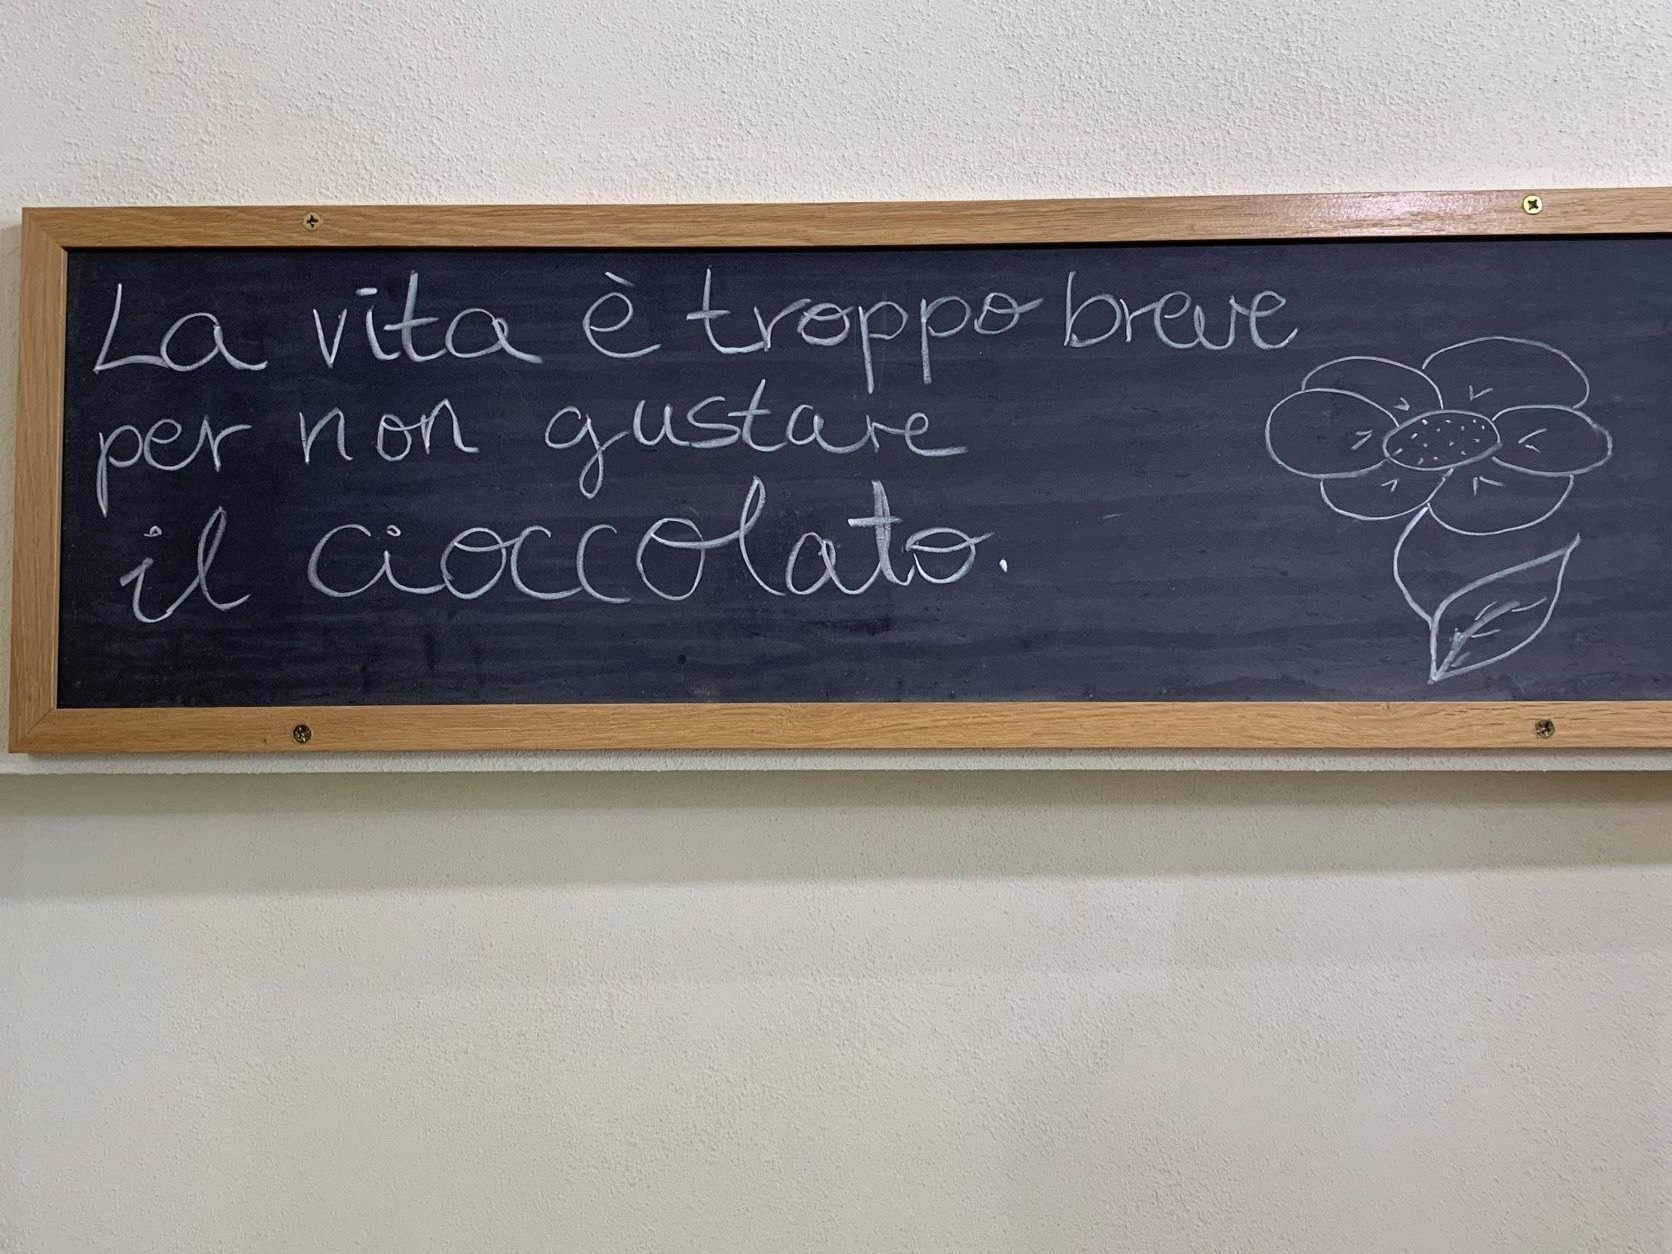 La vita è troppo breve
per non gustare
il cioccolato.